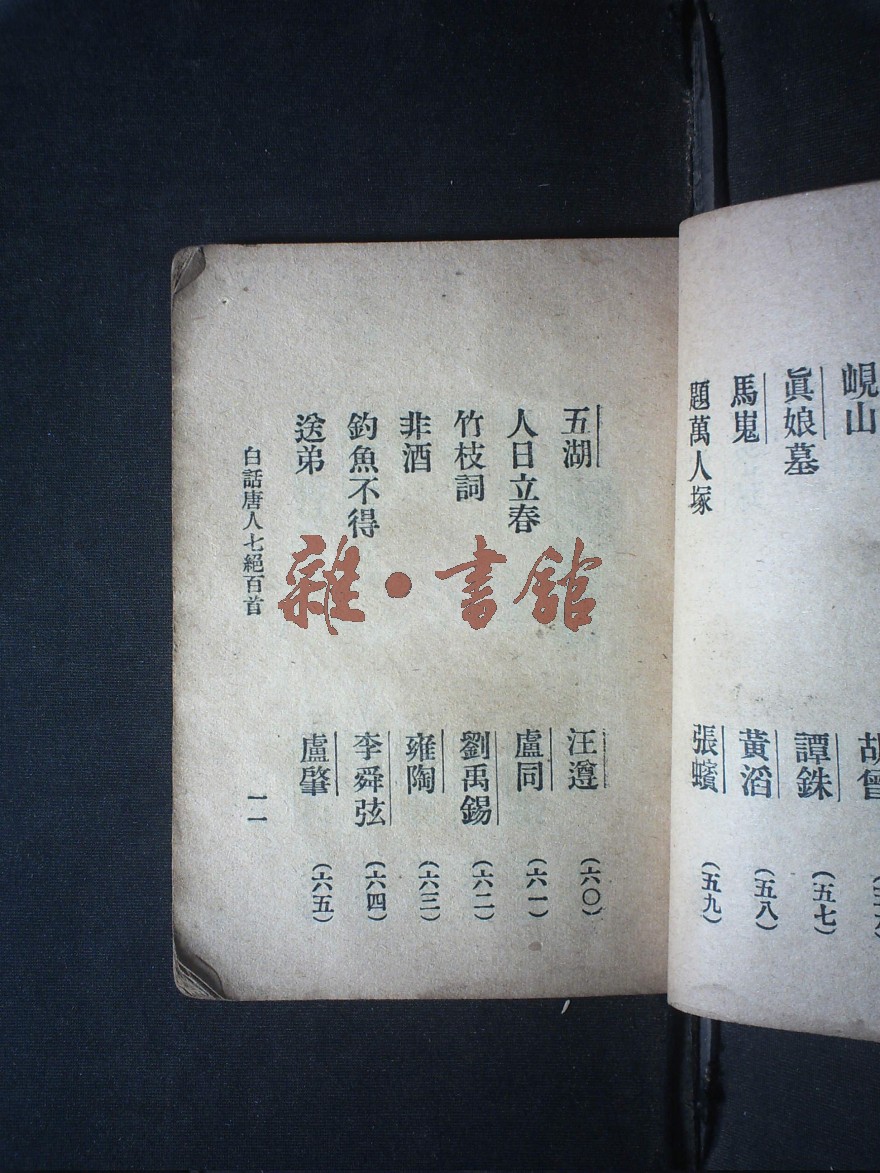 峴山 胡曾
眞娘墓 譚銖 (五七)
馬嵬 黃滔 (五八)
題萬人塚 張蠙 (五九)
五湖 汪遵 (六〇)
人日立春 盧同 (六一)
竹枝詞 劉禹錫 (六二)
非酒 雍陶 (六三)
釣魚不得 李舜弦 (六四)
送弟 盧肇 (六五)
白話唐人七絕百首 一一
雜·書館